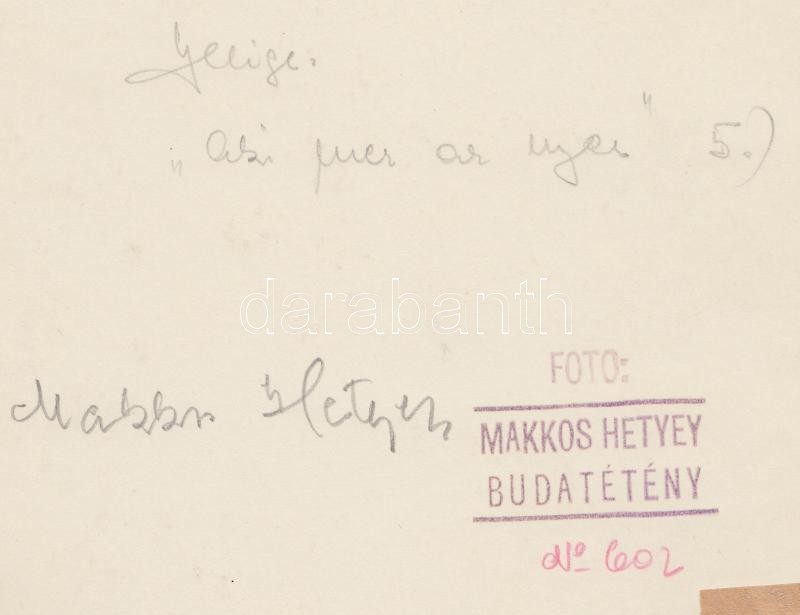 Jelige:
„Aki mer az nyer" 5.)
darabanth
Makkos Hetyey
FOTO:
MAKKOS HETYEY
BUDATÉTÉNY
No 602